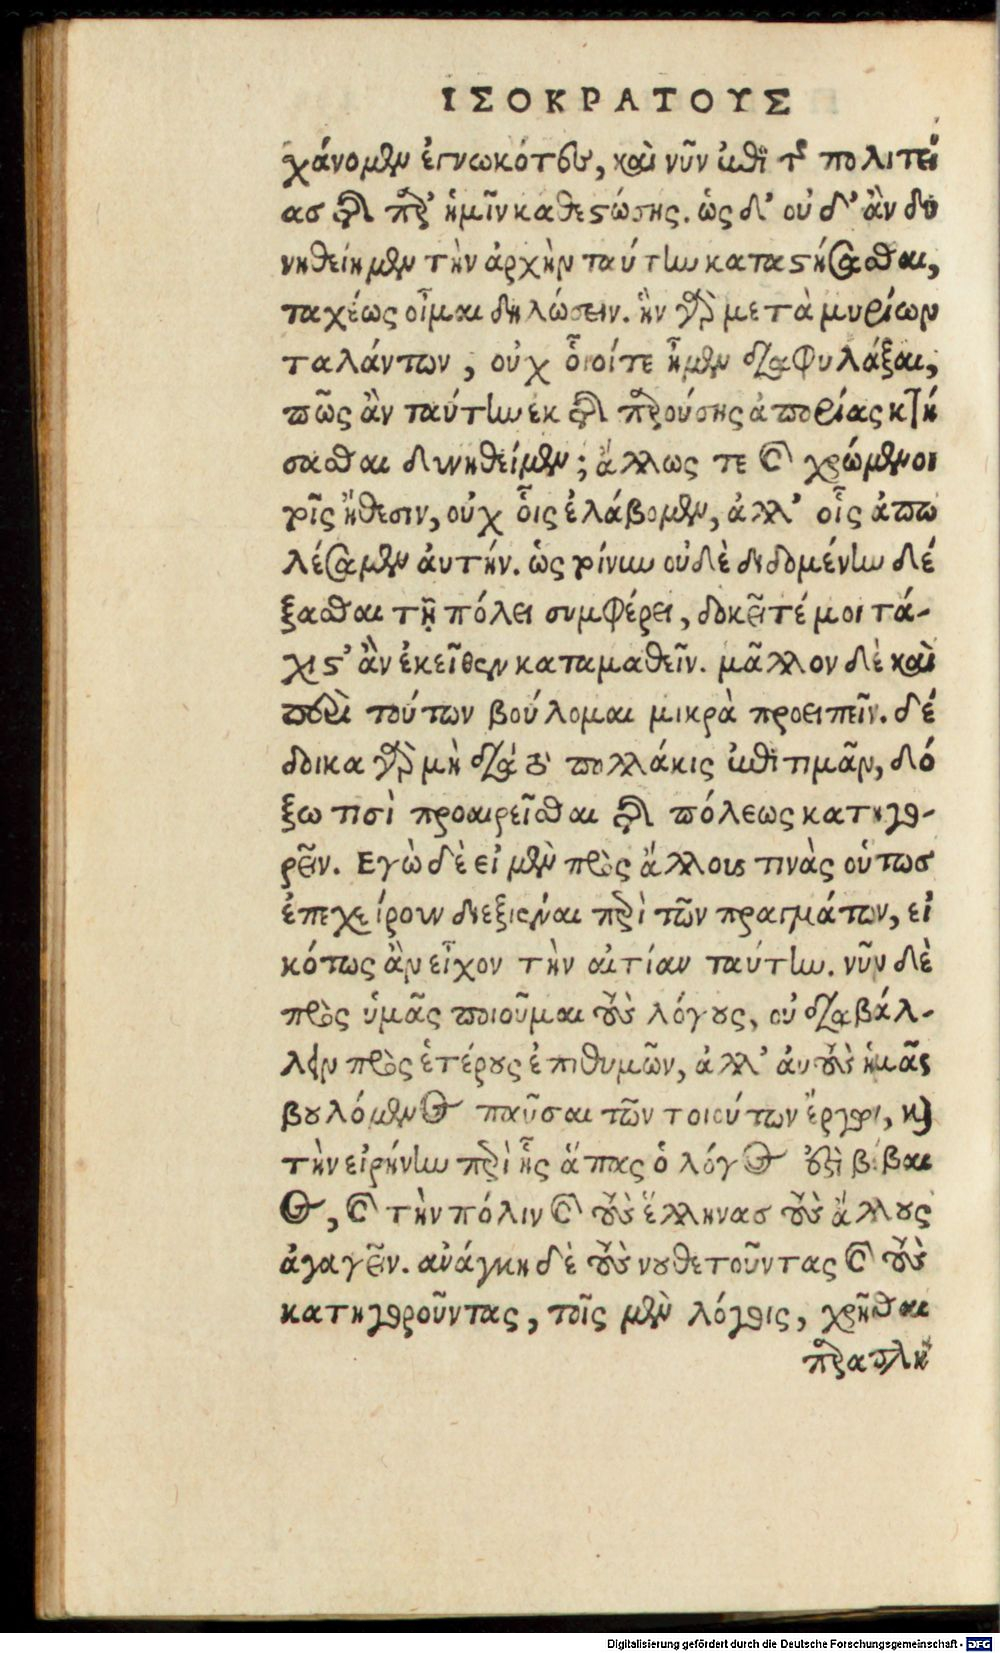 ΙΣΟΚΡΑΤΟΥΣ
χάνομεν ἐγνωκότες, καὶ νῦν ἐπὶ τῆς πολιτεί
ας τῆς παρ’ ἡμῖν καθεστώσης. ὡς δ’ οὐδ’ ἂν δυ
νηθείημεν τὴν ἀρχὴν ταύτην καταστήσασθαι,
ταχέως οἶμαι δηλώσειν. ἣν γὰρ μετὰ μυρίων
ταλάντων, οὐχ οἷοίτε ἦμεν διαφυλάξαι,
πῶς ἂν ταύτην ἐκ τῆς παρούσης ἀπορίας κτή
σασθαι δυνηθείμεν; ἄλλως τε καὶ χρώμενοι
τοῖς ἤθεσιν, οὐχ οἷς ἐλάβομεν, ἀλλ’ οἷς ἀπω
λέσαμεν αὐτήν. ὡς τοίνυν οὐδὲ διδομένην δέ
ξασθαι τῇ πόλει συμφέρει, δοκεῖτέ μοι τά-
χιστ’ ἂν ἐκεῖθεν καταμαθεῖν. μᾶλλον δὲ καὶ
περὶ τούτων βούλομαι μικρὰ προειπεῖν. δέ
δοικα γὰρ μὴ διὰ τὸ πολλάκις ἐπιτιμᾶν, δό
ξω τισὶ προαιρεῖσθαι τῆς πόλεως κατηγο-
ρεῖν. Εγὼ δὲ εἰ μὲν πρὸς ἄλλους τινὰς οὕτως
ἐπεχείρουν διεξιέναι περὶ τῶν πραγμάτων, εἰ
κότως ἂν εἶχον τὴν αἰτίαν ταύτην. νῦν δὲ
πρὸς ὑμᾶς ποιοῦμαι τοὺς λόγους, οὐ διαβάλ-
λειν πρὸς ἑτέρους ἐπιθυμῶν, ἀλλ’ αὐτοὺς ἡμᾶς
βουλόμενος παῦσαι τῶν τοιούτων ἔργων, καὶ
τὴν εἰρήνην περὶ ἧς ἅπας ὁ λόγος ἐστὶ βεβαι
ος, καὶ τὴν πόλιν καὶ τοὺς ἕλληνας τοὺς ἄλλους
ἀγαγεῖν. ανάγκη δὲ τοὺς νουθετοῦντας καὶ τοὺς
κατηγοροῦντας, τοῖς μὲν λόγοις, χρῆσθαι
παραπλη
Digitalisierung gefördert durch die Deutsche Forschungsgemeinschaft - DFG